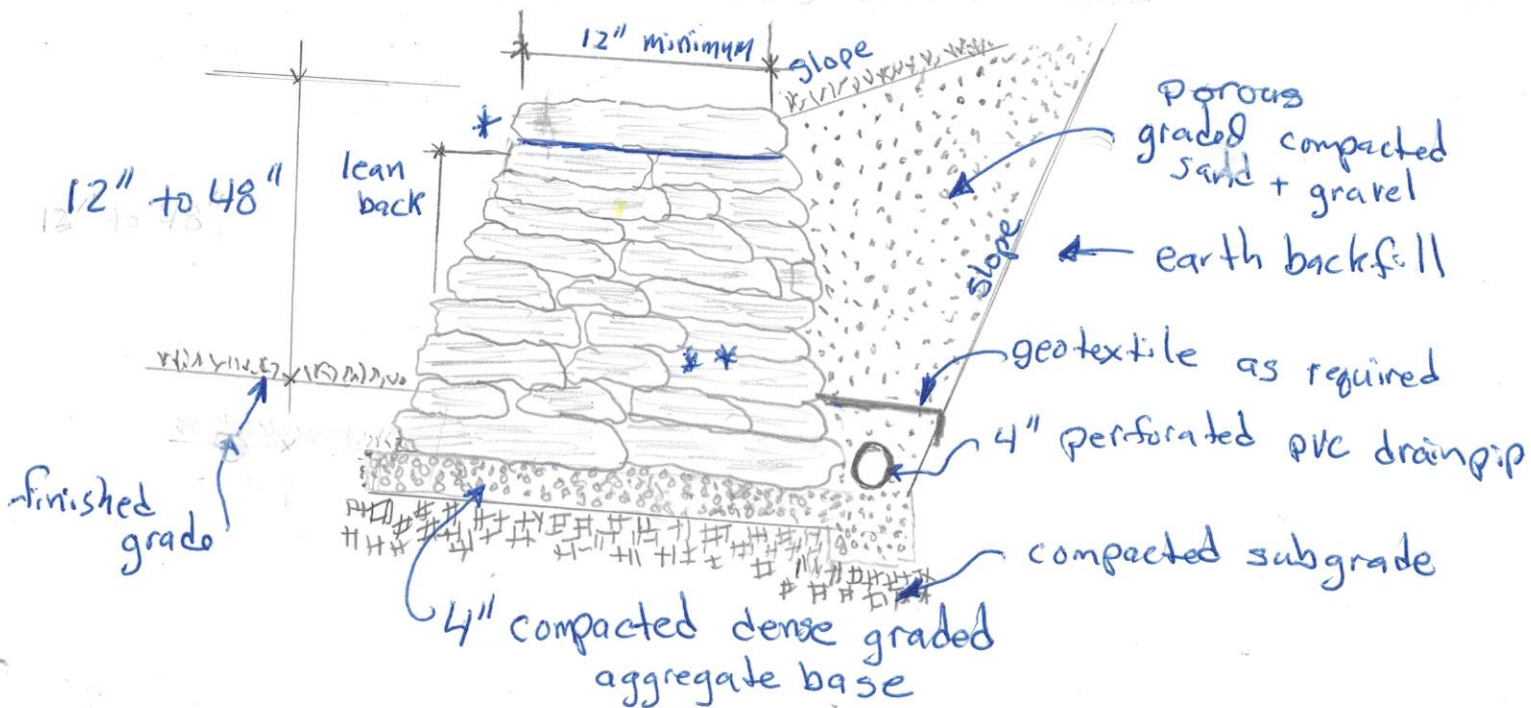 12" minimum
slope
*
lean
back
12" to 48"
12" to 48"
porous
graded compacted
sand + gravel
slope
earth backfill
geotextile as required
**
4" perforated PVC drainpip
finished
grade
compacted subgrade
4" compacted dense graded
aggregate base